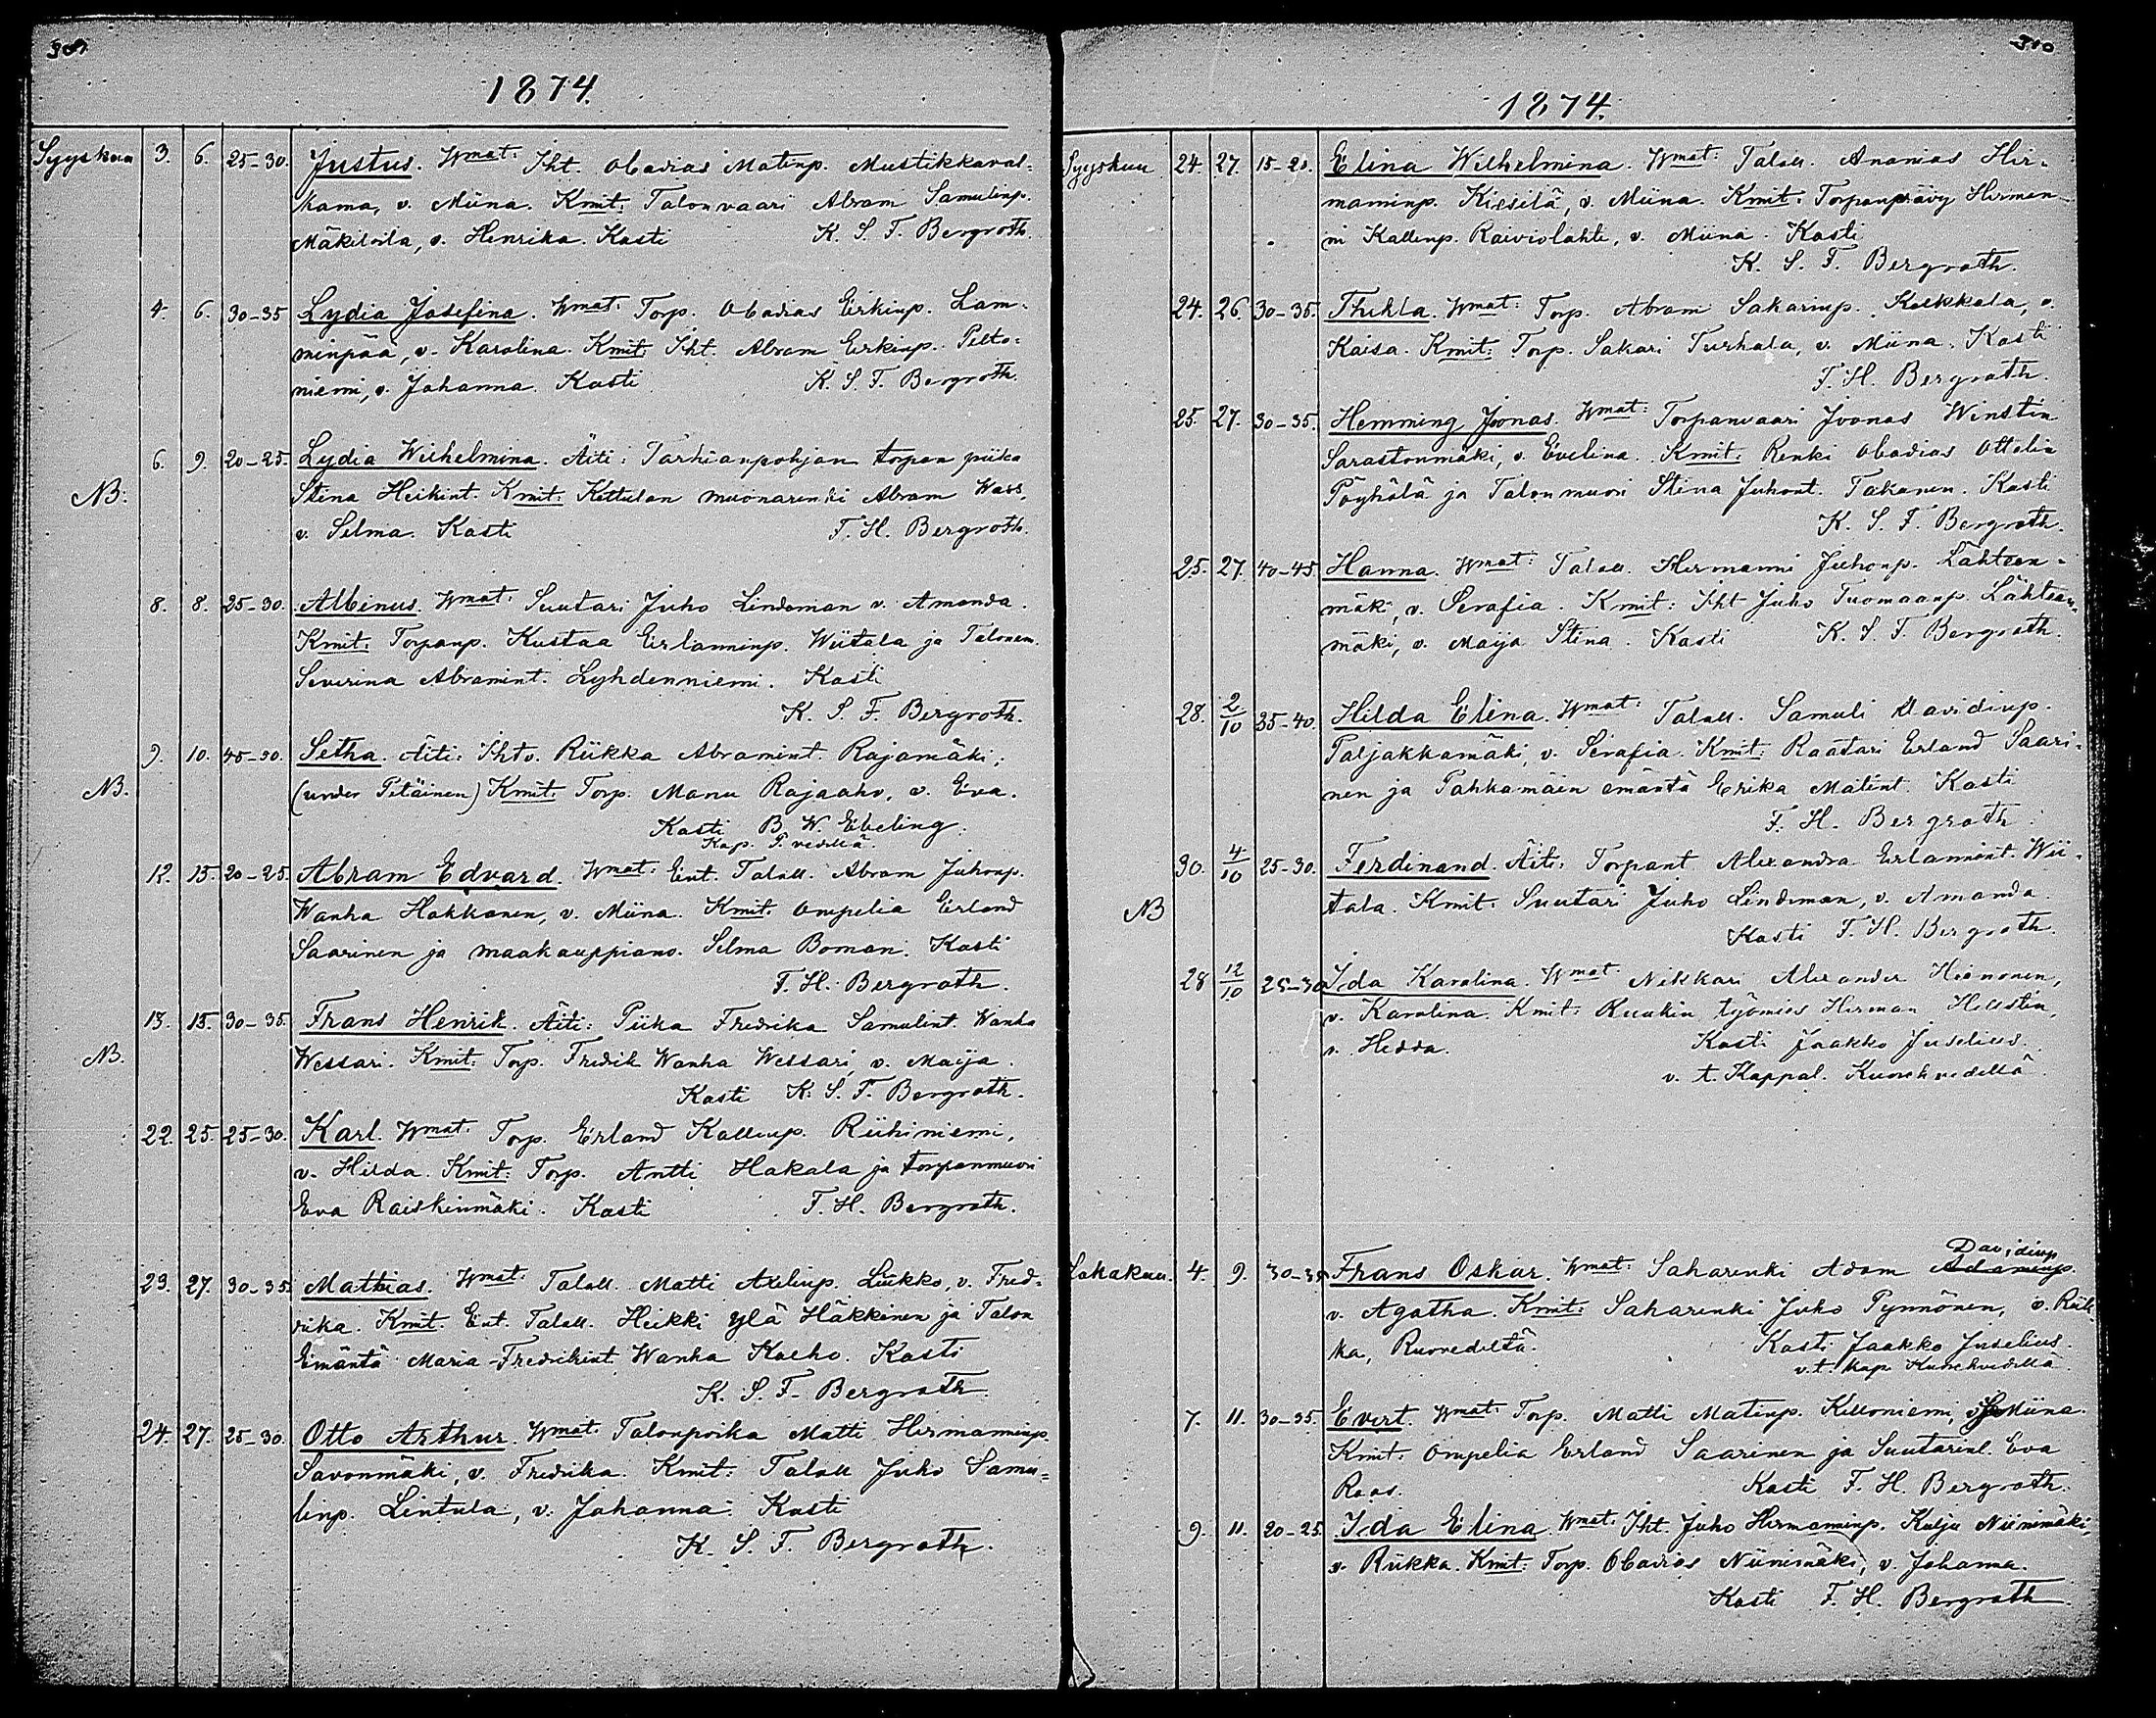 309
1874.
Syyskuu 3. 6. 25-30. Justus. Wmat: Iht. Obadias Matinp. Mustikkaval-
kama, v. Miina. Kmit: Talonvaari Abram Samulinp.
Mäkiloila, v. Henrika. Kasti K. S. F. Bergroth.
4. 6. 30-35 Lydia Josefina. Wmat: Torp. Obadias Erkinp. Lam-
minpää, v. Karolina. Kmit: Iht. Abram Erkinp. Pelto-
niemi, v. Johanna. Kasti K. S. F. Bergroth.
6. 9. 20-25. Lydia Wilhelmina. Äiti: Tarhianpohjan torpan piika
NB. Stina Heikint. Kmit: Kettulan muonarenki Abram Wass,
v. Selma. Kasti F. H. Bergroth.
8. 8. 25-30. Albinus. Wmat: Suutari Juho Lindeman v. Amanda.
Kmit: Torpanp. Kustaa Erlanninp. Wiitala ja Talonem.
Severina Abramint. Lyhdenniemi. Kasti
K. S. F. Bergroth.
9. 10. 45-50. Setha. Äiti: Ihto. Riikka Abramint. Rajamäki;
NB. (under Petäinen) Kmit: Torp. Manu Rajaaho, v. Eva.
Kasti B. W. Ebeling.
Kap. P. vedellä.
12. 15. 20-25. Abram Edvard. Wmat: Ent. Talall. Abram Juhonp.
Wanha Hakkanen, v. Miina. Kmit: Ompelia Erland
Saarinen ja maakauppiano. Selma Boman. Kasti
F. H. Bergroth.
13. 15. 30-35. Frans Henrik. Äiti: Piika Fredrika Samulint. Wanha
NB. Wessari. Kmit: Torp. Fredrik Wanha Wessari, v. Maija.
Kasti K. S. F. Bergroth.
22. 25. 25-30. Karl. Wmat: Torp. Erland Kallenp. Riihiniemi,
v. Hilda. Kmit: Torp. Antti Hakala ja torpanmuori
Eva Raiskinmäki. Kasti F. H. Bergroth.
23. 27. 30-35. Mathias. Wmat: Talall. Matti Axelinp. Liukko, v. Fred-
rika. Kmit. Ent. Talall. Heikki Ylä Häkkinen ja Talon
Emäntä Maria Fredrikint. Wanha Kaeho. Kasti
K. S. F. Bergroth.
24. 27. 25-30. Otto Arthur. Wmat: Talonpoika Matti Hermanninp.
Savonmäki, v. Fredrika. Kmit: Talall Juho Samu-
linp. Lintula, v. Johanna. Kasti
K. S. F. Bergroth.
310
1874.
Syyskuu 24. 27. 15-20. Elina Wilhelmina. Wmat: Talall. Ananias Her-
manninp. Kiesilä, v. Miina. Kmit: Torpanpvävy Herman-
ni Kallenp. Raiviolahti, v. Miina. Kasti
K. S. F. Bergroth.
24. 26. 30-35. Thekla. Wmat: Torp. Abram Sakarinp. Kolkkala, v.
Kaisa. Kmit: Torp. Sakari Turhala, v. Miina. Kasti
F. H. Bergroth.
25. 27. 30-35. Hemming Joonas. Wmat: Torpanvaari Joonas Winstin
Sarastonmäki, v. Evelina. Kmit: Renki Obadias Ottelin
Pöyhölä ja Talonmuori Stina Juhont. Takanen. Kasti
K. S. F. Bergroth.
25. 27. 40-45. Hanna. Wmat: Talall. Hermanni Juhonp. Lähteen-
mäki, v. Serafia. Kmit: Iht Juho Tuomaanp. Lähteen-
mäki, v. Maija Stina. Kasti K. S. F. Bergroth.
28. 2/10 35-40. Hilda Elina. Wmat: Talall. Samuli Davidinp.
Paljakkamäki, v. Serafia. Kmit: Raatari Erland Saari-
nen ja Pahkamäen emäntä Erika Matint. Kasti
F. H. Bergroth.
30. 4/10 25-30. Ferdinand. Äiti: Torpant Alexandra Erlamint. Wii-
NB tala. Kmit: Suutari Juho Lindeman, v. Amanda.
Kasti F. H. Bergroth.
28 12/10 25-30 Ida Karolina. Wmat: Nikkari Alexander Heinonen,
v. Karolina. Kmit: Ruukin työmies Herman Hellstin,
v. Hedda. Kasti Jaakko Juselius.
v. t. Kappal. Kuorehvedellä.
Lokakuu. 4. 9. 30-35 Frans Oskar. Wmat: Saharenki Adam Adaminp. Davidinp
v. Agatha. Kmit: Saharenki Juho Pynnönen, v. Riik-
ka, Ruovedeltä. Kasti Jaakko Juselius.
v. t. Kap. Kuorehvedellä.
7. 11. 30-35. Evert. Wmat: Torp. Matti Matinp. Killoniemi, Miina.
Kmit: Ompelia Erland Saarinen ja Suutarinl. Eva
Roos. Kasti F. H. Bergroth.
9. 11. 20-25. Ida Elina. Wmat: Iht. Juho Hermanninp. Kulju Niinimäki,
v. Riikka. Kmit: Torp. Obadias Niinimäki, v. Johanna.
Kasti F. H. Bergroth